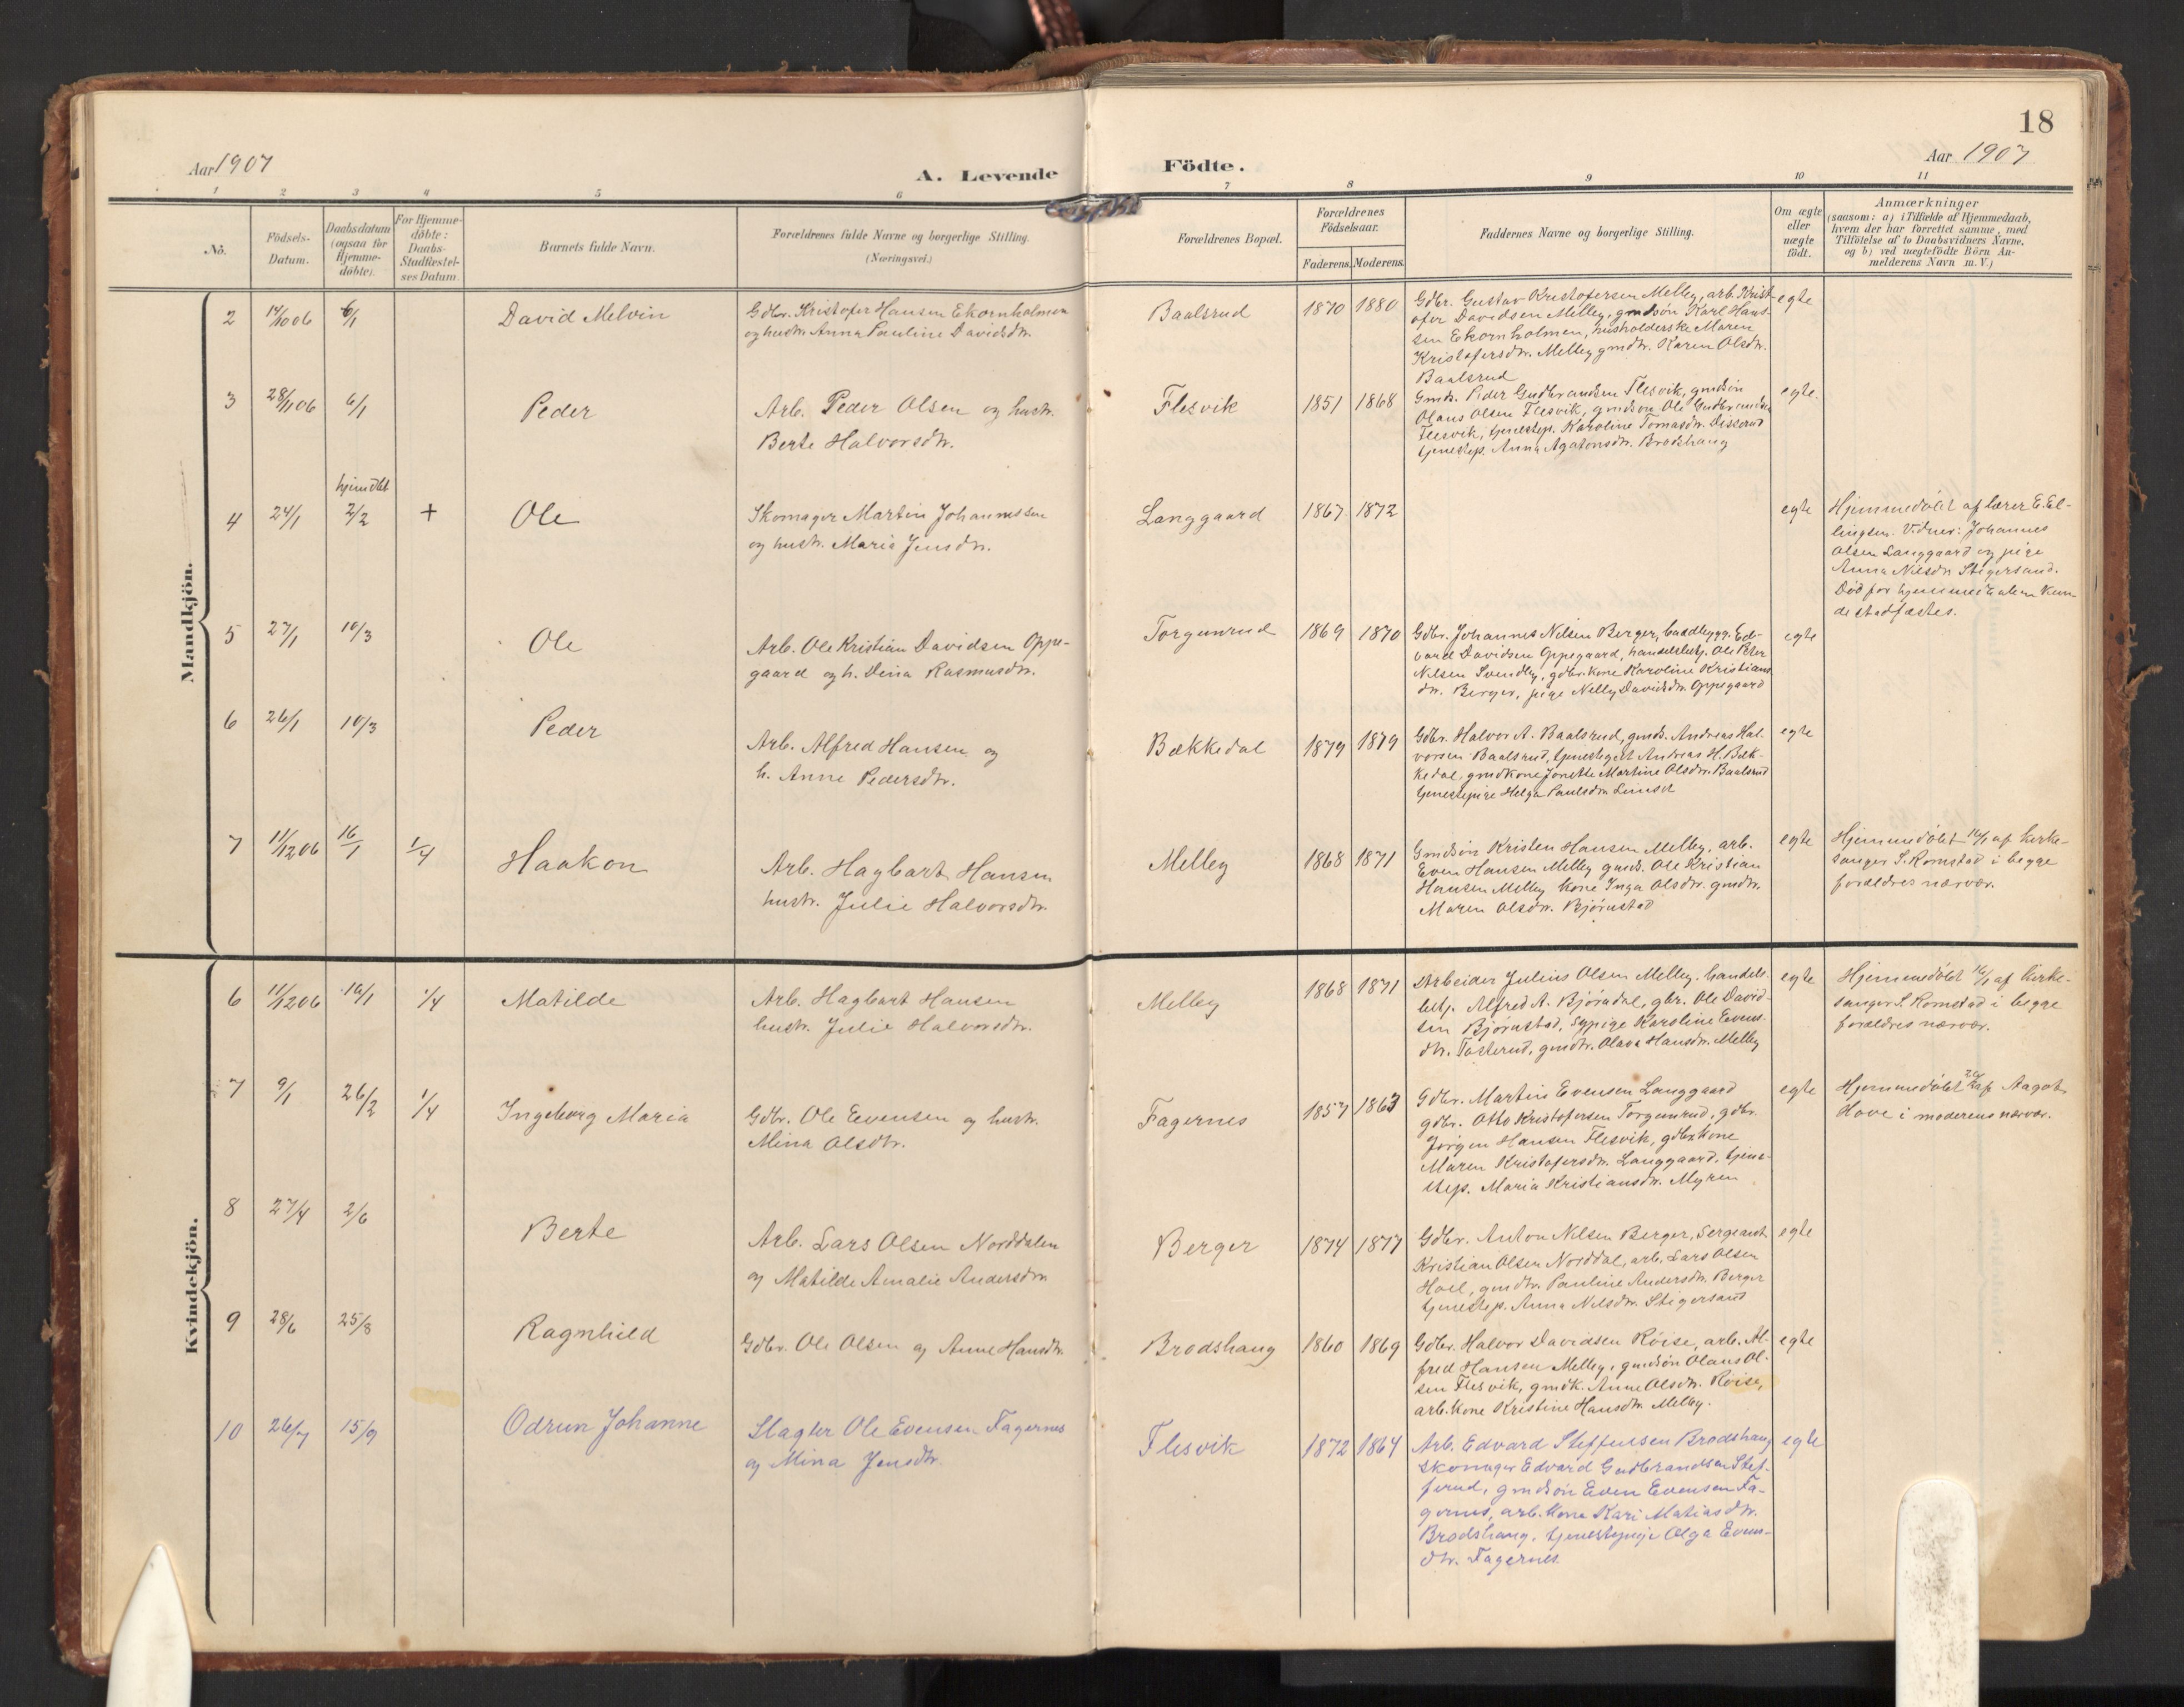 18
Aar 1907
A. Levende
Födte.
Aar 1907
1 2 3 4 5 6 7 8 9 10 11
No.
Födsels-
Datum.
Daabsdatum
(ogsaa for
Hjemme-
döbte).
For Hjemme-
döbte:
Daabs-
Stadfæstel-
ses Datum.
Barnets fulde Navn.
Forældrenes fulde Navne og borgerlige Stilling.
(Næringsvei.)
Forældrenes Bopæl.
Forældrenes
Födselsaar.
Faderens. Moderens.
Faddernes Navne og borgerlige Stilling.
Om ægte
eller
uægte
födt.
Anmærkninger
(saasom: a) i Tilfælde af Hjemmedaab,
hvem der har forrettet samme, med
Tilföielse af to Daabsvidners Navne,
og b) ved uægtefödte Börn An-
melderens Navn m. V.)
Mandkjön.
2 14/10 06 6/1 David Melvin
Gdbr. Kristofer Hansen Ekornholmen
og hustr. Anna Pauline Davidsdtr.
Baalsrud 1870 1880
Gdbr. Gustav Kristofersen Melley, arb. Krist-
ofer Davidsen Melley, gmdsøn Karl Han-
sen Ekornholmen, husholderske Maren
Kristofersdtr. Melley gmdtr. Karen Olsdtr.
Baalsrud
egte
3 28/11 06 6/1 Peder
Arb. Peder Olsen og hustr.
Berte Halvorsdtr.
Flesvik 1851 1868
Gmds. Peder Gudbrandsen Flesvik, gmdsøn
Olaus Olsen Flesvik, gmdsøn Ole Gudbrandsen
Flesvik, tjenestep. Karoline Tomasdtr. Disserud
tjenestep. Anna Agatonsdtr. Brodshaug
egte.
4 24/1 hjemdbt 2/2 + Ole
Skomager Martin Johannessen
og hustr. Maria Jensdtr.
Langgaard 1867 1872
egte
Hjemmedøbt af lærer E. El-
lingsen. Vidner: Johannes
Olsen Langgaard og pige
Anna Nilsdtr. Stigersand.
Død før hjemmedaaben kun-
de stadfæstes.
5 27/1 10/3 Ole
Arb. Ole Kristian Davidsen Oppe-
gaard og h. Dina Rasmusdtr.
Torgunrud 1869 1870
Gdbr. Johannes Nilsen Berger, baadbygg. Ed-
vard Davidsen Oppegaard, handelsbetj. Ole Peter
Nilsen Svendby, gdbr. kone Karoline Kristians-
dtr. Berger, pige Nelly Davidsdtr. Oppegaard
egte
6 26/1 10/3 Peder
Arb. Alfred Hansen og
h. Anne Pedersdtr.
Bækkedal 1879 1879
Gdbr. Halvor A. Baalsrud, gmds. Andreas Hal-
vorsen Baalsrud, tjenestegut Andreas H. Bæk-
kedal, gmdkone Jonette Martine Olsdtr. Baalsrud
tjenestepige Helga Paulsdtr. Linset
egte
7 11/12 06 16/1 1/4 Haakon
Arb. Hagbart Hansen
hustr. Julie Halvorsdtr.
Melley 1868 1871
Gmdsøn Kristen Hansen Melley, arb.
Even Hansen Melley gmds. Ole Kristian
Hansen Melley kone Inga Olsdtr. gmdtr.
Maren Olsdtr. Bjørnstad
egte
Hjemmedøbt 16/1 af kirke-
sanger S. Romstad i begge
forældres nærvær.
Kvindekjön.
6 11/12 06 16/1 1/4 Matilde
Arb. Hagbart Hansen
hustr. Julie Halvorsdtr.
Melley 1868 1871
Arbeider Julius Olsen Melley, handels-
betj. Alfred A. Bjørndal, gbr. Ole David-
sen Bjørnstad, sypige Karoline Evens-
dtr. Tosterud, gmdtr. Olava Hansdtr. Melley
egte
Hjemmedøbt 16/1 af kirke-
sanger S. Romstad i begge
forældres nærvær.
7 9/1 26/2 1/4 Ingeborg Maria
Gdbr. Ole Evensen og hustr.
Mina Olsdtr.
Fagernes 1857 1863
Gdbr. Martin Evensen Langgaard
gdbr. Otto Kristofersen Torgunrud, gdbr.
Jørgen Hansen Flesvik, gdbr. kone
Maren Kristofersdtr. Langgaard, tjene-
step. Maria Kristiansdtr. Myren
egte
Hjemmedøbt 26/2 af Aagot
Hove i moderens nærvær.
8 27/4 2/6 Berte
Arb. Lars Olsen Norddalen
og Matilde Amalie Andersdtr.
Berger 1874 1877
Gdbr. Anton Nilsen Berger, Sergeant
Kristian Olsen Norddal, arb. Lars Olsen
Hoel, gmdtr. Pauline Andersdtr. Berger
tjenestep. Anna Nilsdtr. Stigersand
egte
9 28/6 25/8 Ragnhild
Gdbr. Ole Olsen og Anne Hansdtr.
Brodshaug 1860 1869
Gdbr. Halvor Davidsen Røise, arb. Al-
fred Hansen Melley, gmdsøn Olaus Ol-
sen Flesvik, gmdk. Anne Olsdtr. Røise,
arb. kone Kristine Hansdtr. Melley.
egte
10 26/7 15/9 Odrun Johanne
Slagter Ole Evensen Fagernes
og Mina Jensdtr.
Flesvik 1872 1864
Arb. Edvard Steffensen Brodshaug
skomager Edvard Gudbrandsen Stef-
ferud, gmdsøn Even Evensen Fa-
gernes, arb. kone Kari Matiasdtr.
Brodshaug, tjenestepige Olga Evens-
dtr. Fagernes.
egte